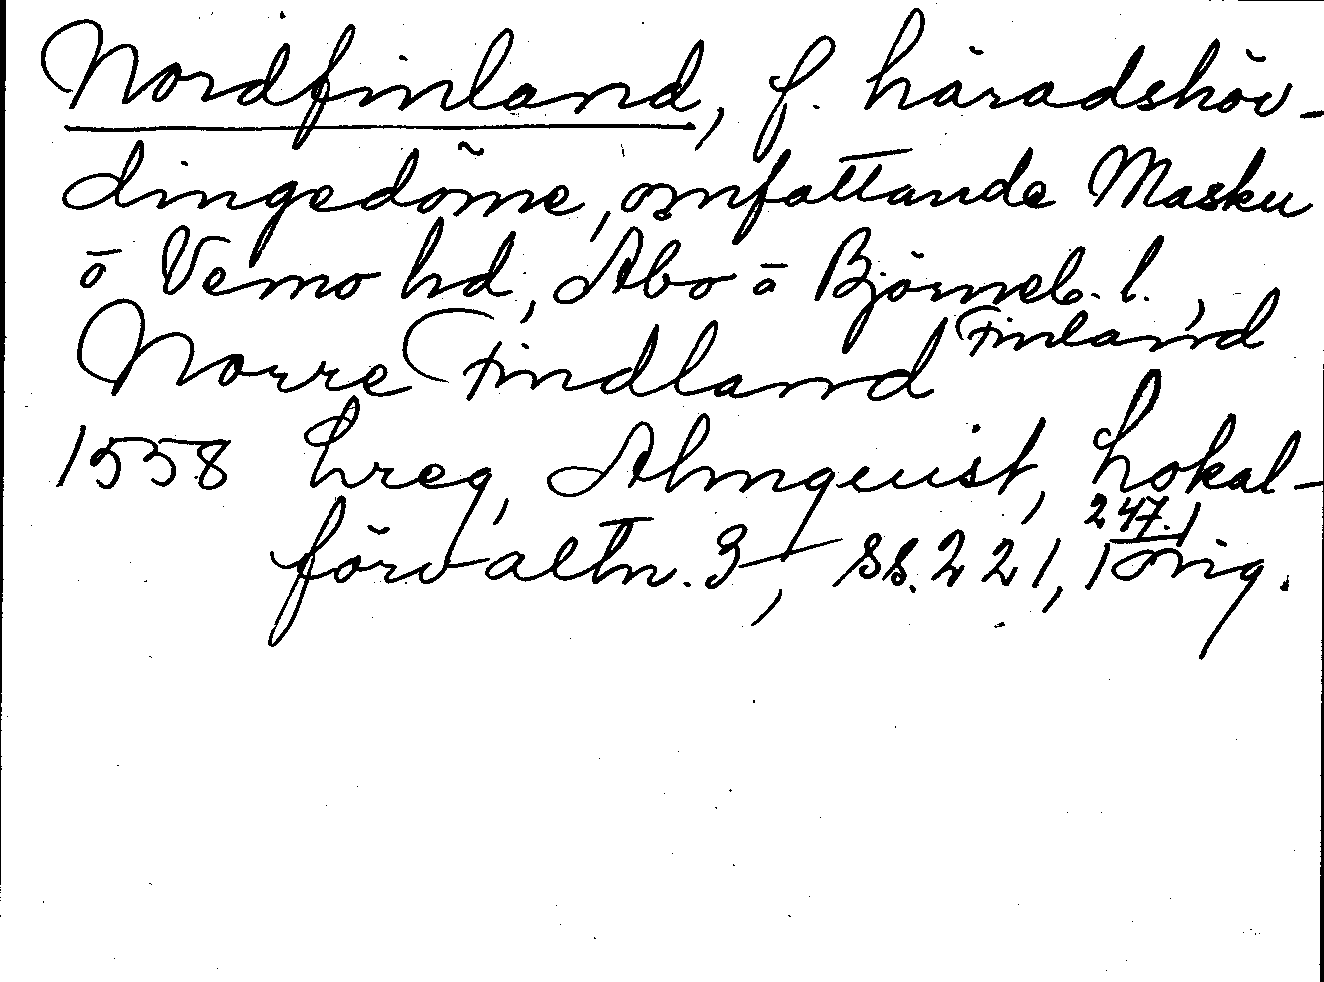 Nordfinland, f. häradshöv-
dingedöme, omfattande Masku
o Vemo hd, Åbo o Björneb. l.,
Finland
Norre Findland
1558 hreg, Almquist, Lokal-
förvaltn. 3, ss. 221, 247. orig.